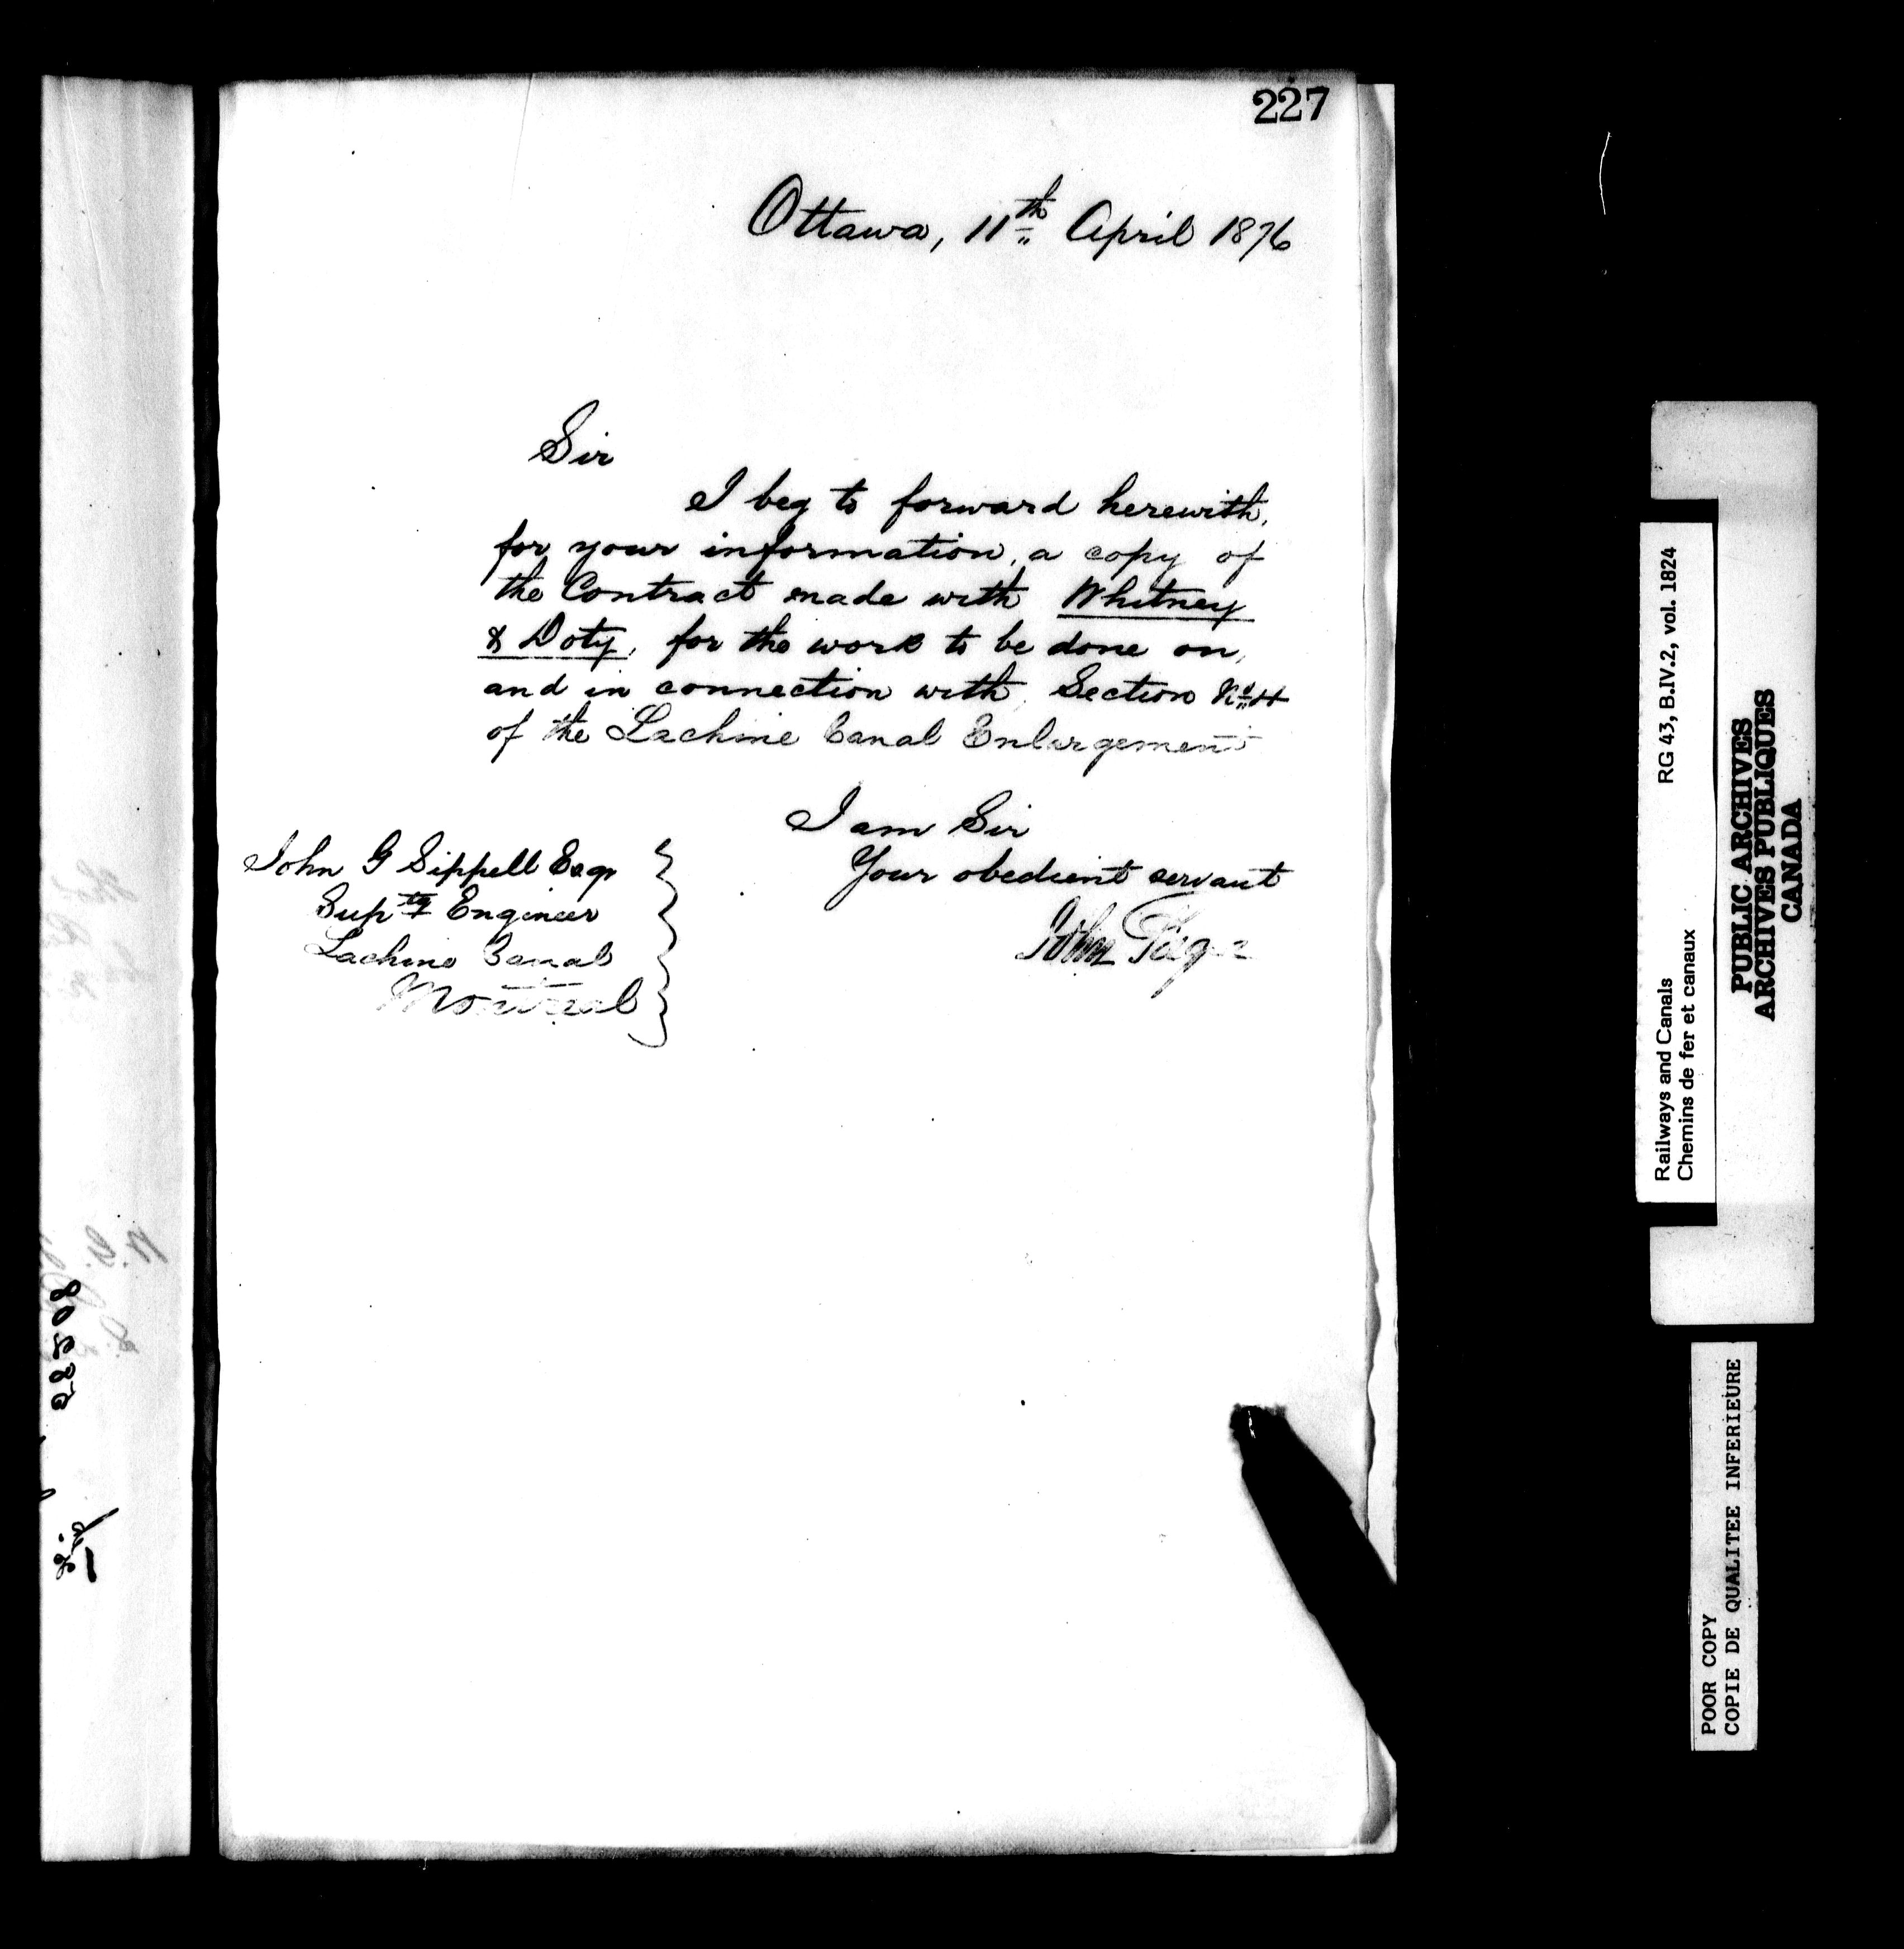 227
Ottawa, 11th April 1876
Sir
I beg to forward herewith,
for your information, a copy of
the Contract made with Whitney
& Doty, for the work to be done on,
and in connection with, Section No 4
of the Lachine Canal Enlargement
I am Sir
Your obedient servant
John Page
John G Sippell Esqr
Suptg Engineer
Lachine Canal
Montreal
RG 43, B.IV.2, vol. 1824
Railways and Canals
Chemins de fer et canaux
PUBLIC ARCHIVES
ARCHIVES PUBLIQUES
CANADA
POOR COPY
COPIE DE QUALITEE INFERIEURE